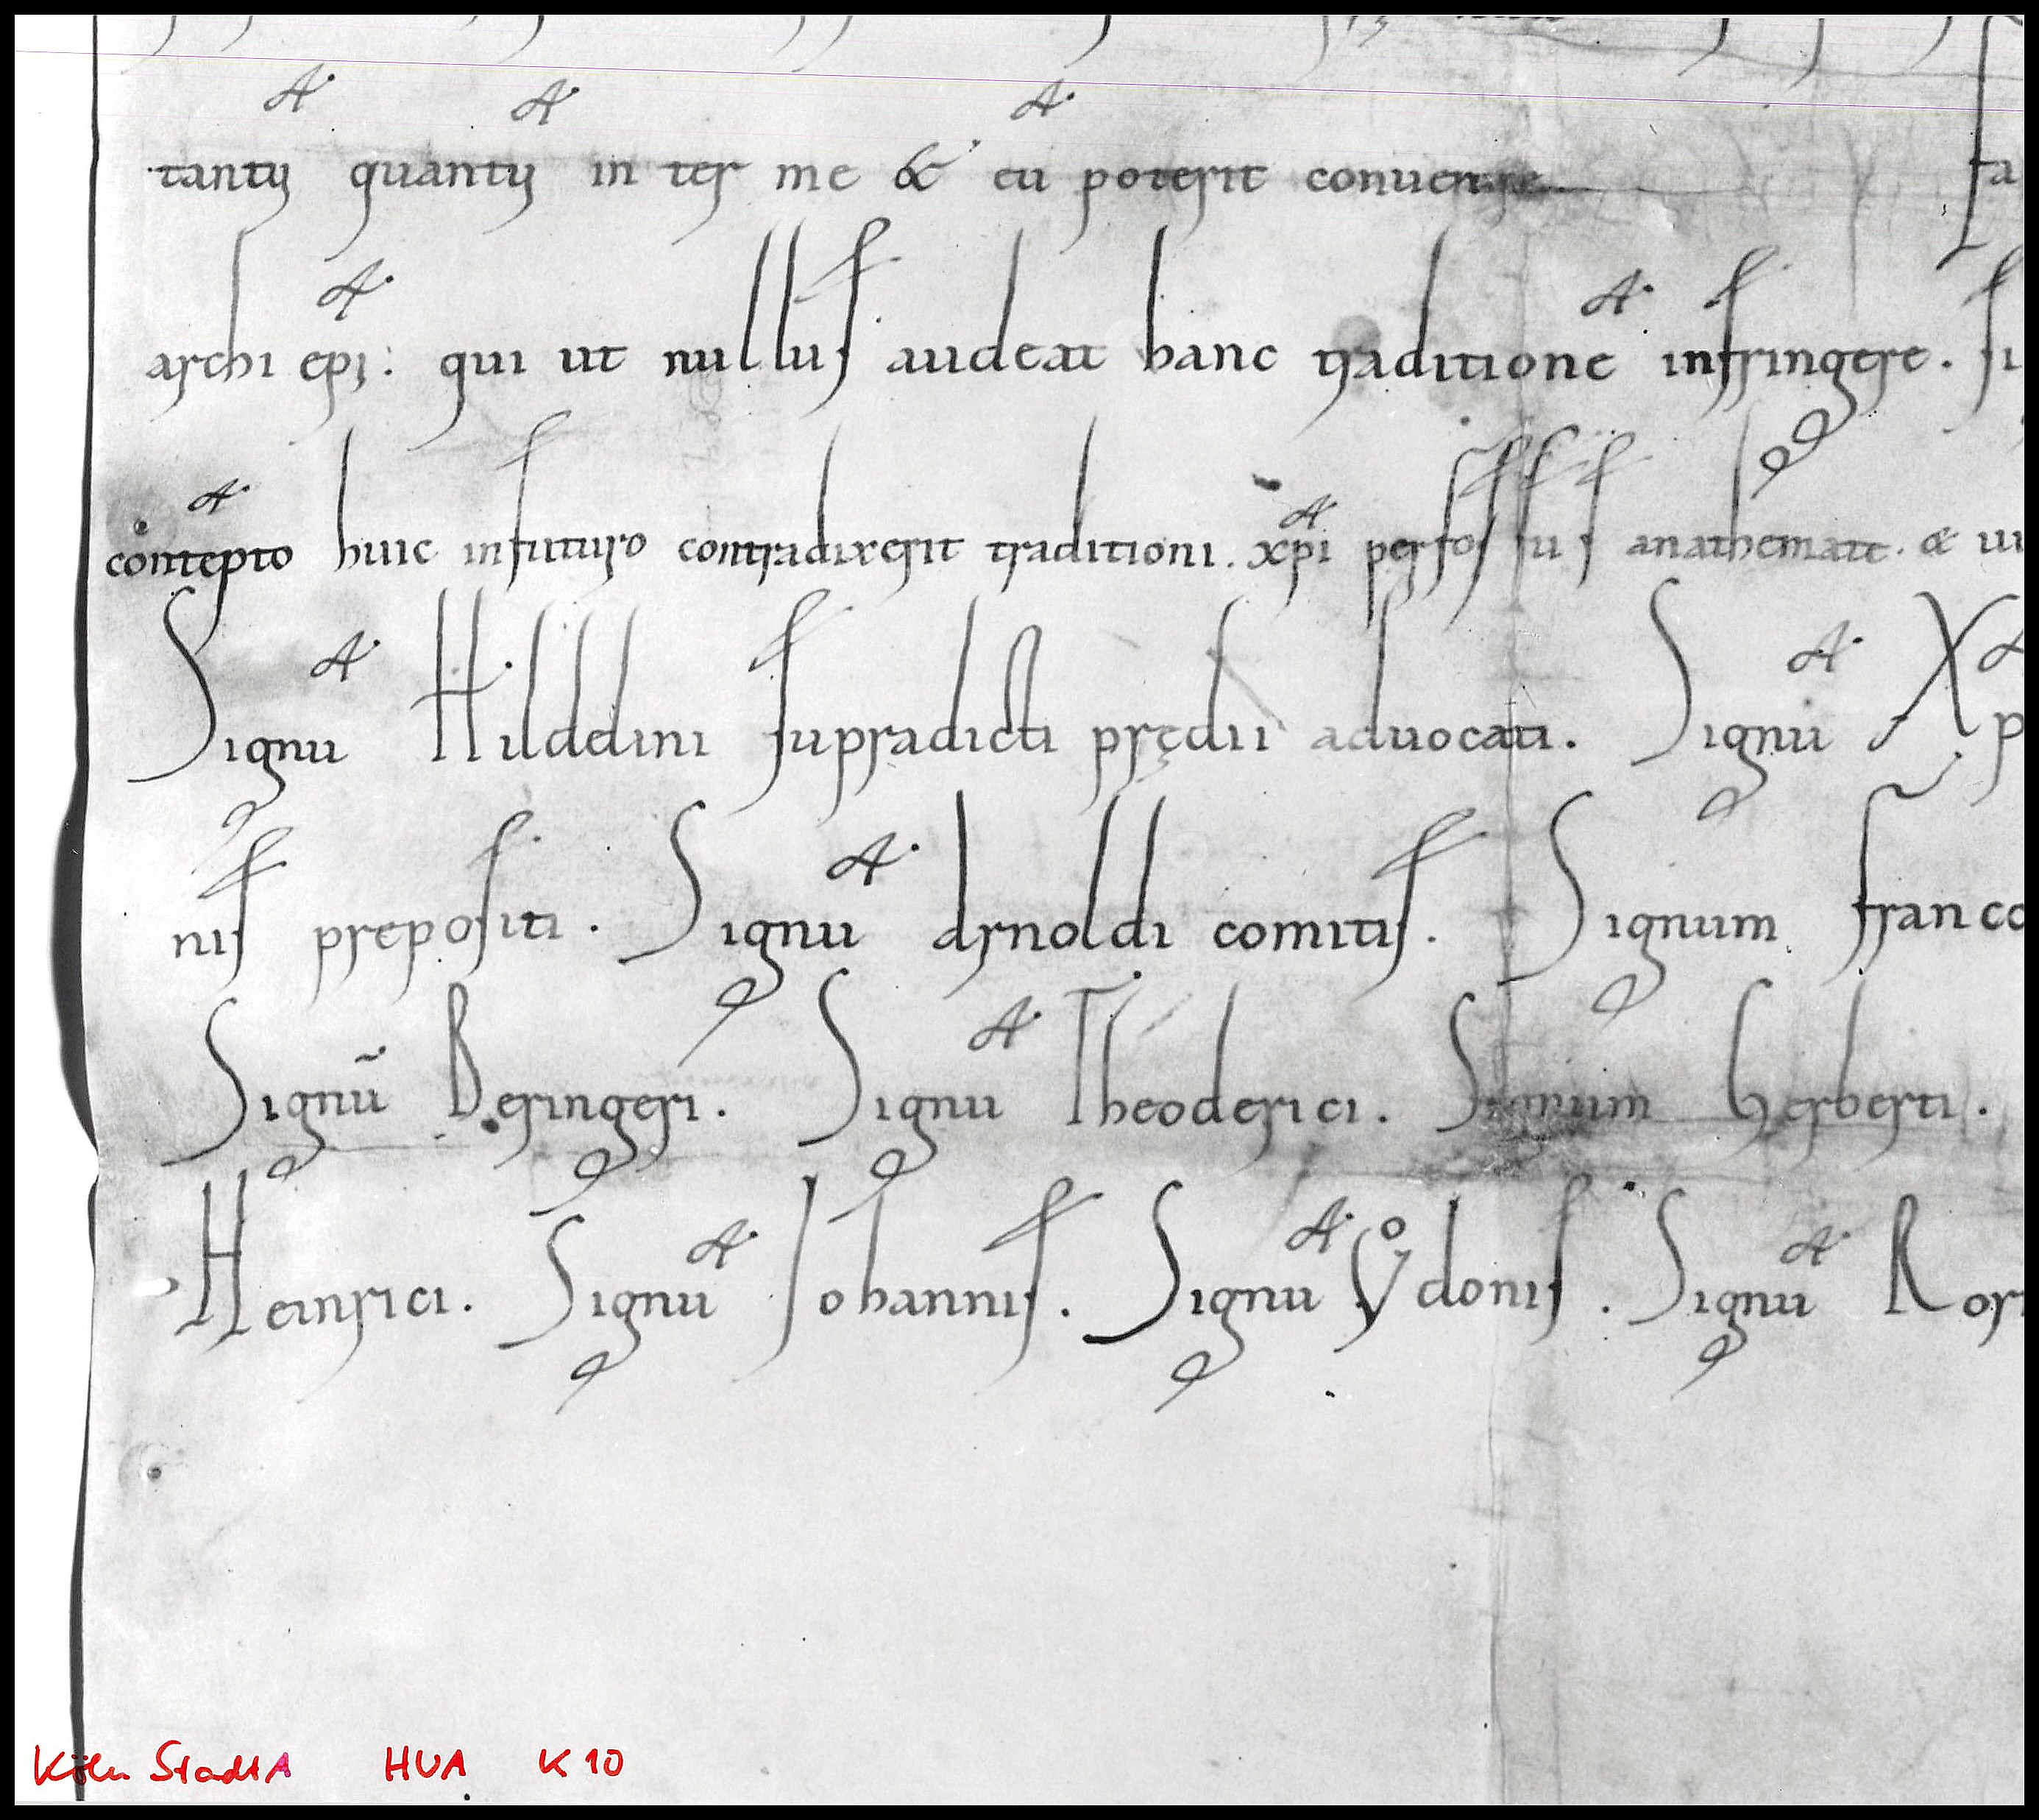 tantu quantu inter me & eu poterit conuenire
archi epi: qui ut nulluſ audeat hanc traditione infringere. ſi
contepto huic infuturo contradixerit traditioni. xpi perfoſſuſ anathemate. &
Signu Hilddini ſupradicti prędii aduocati. Signu Xp
niſ prepoſiti. Signu Arnoldi comitiſ. Signum franco
Signū Beringeri. Signu Theoderici. Signum Herberti.
Heinrici. Signu Iohanniſ. Signu Vͦdoniſ. Signu Ror
Köln StadtA HUA K 10